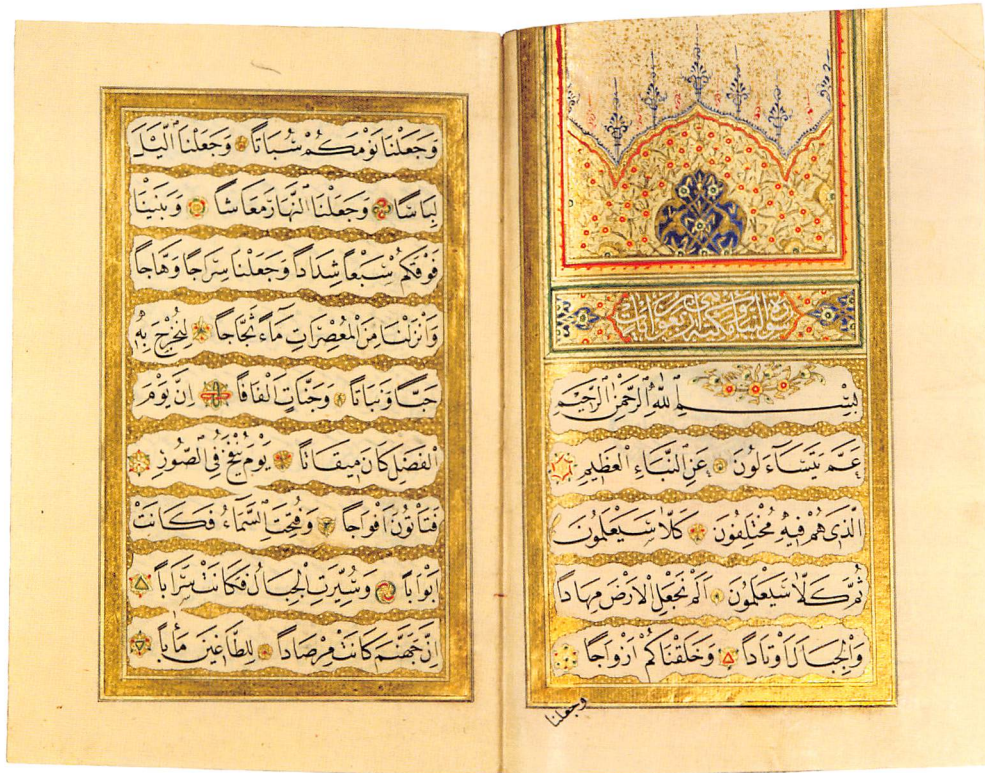 سورة النبا مكية وهى اربعون
بِسْمِ اللّٰهِ الرَّحْمٰنِ الرَّحِيمِ
عَمَّ يَتَسَاءَلُونَ عَنِ النَّبَاءِ الْعَظِيمِ
الَّذِى هُمْ فِيهِ مُخْتَلِفُونَ كَلَّا سَيَعْلَمُونَ
ثُمَّ كَلَّا سَيَعْلَمُونَ اَلَمْ نَجْعَلِ الْاَرْضَ مِهَادًا
وَالْجِبَالَ اَوْتَادًا وَخَلَقْنَاكُمْ اَزْوَاجًا
وجعلنا
وَجَعَلْنَا نَوْمَكُمْ سُبَاتًا وَجَعَلْنَا الَّيْلَ
لِبَاسًا وَجَعَلْنَا النَّهَارَ مَعَاشًا وَبَنَيْنَا
فَوْقَكُمْ سَبْعًا شِدَادًا وَجَعَلْنَا سِرَاجًا وَهَّاجًا
وَاَنْزَلْنَا مِنَ الْمُعْصِرَاتِ مَاءً ثَجَّاجًا لِنُخْرِجَ بِهِ
حَبًّا وَنَبَاتًا وَجَنَّاتٍ اَلْفَافًا اِنَّ يَوْمَ
الْفَصْلِ كَانَ مِيقَاتًا يَوْمَ يُنْفَخُ فِى الصُّورِ
فَتَأْتُونَ اَفْوَاجًا وَفُتِحَتِ السَّمَاءُ فَكَانَتْ
اَبْوَابًا وَسُيِّرَتِ الْجِبَالُ فَكَانَتْ سَرَابًا
اِنَّ جَهَنَّمَ كَانَتْ مِرْصَادًا لِلطَّاغِينَ مَاٰبًا